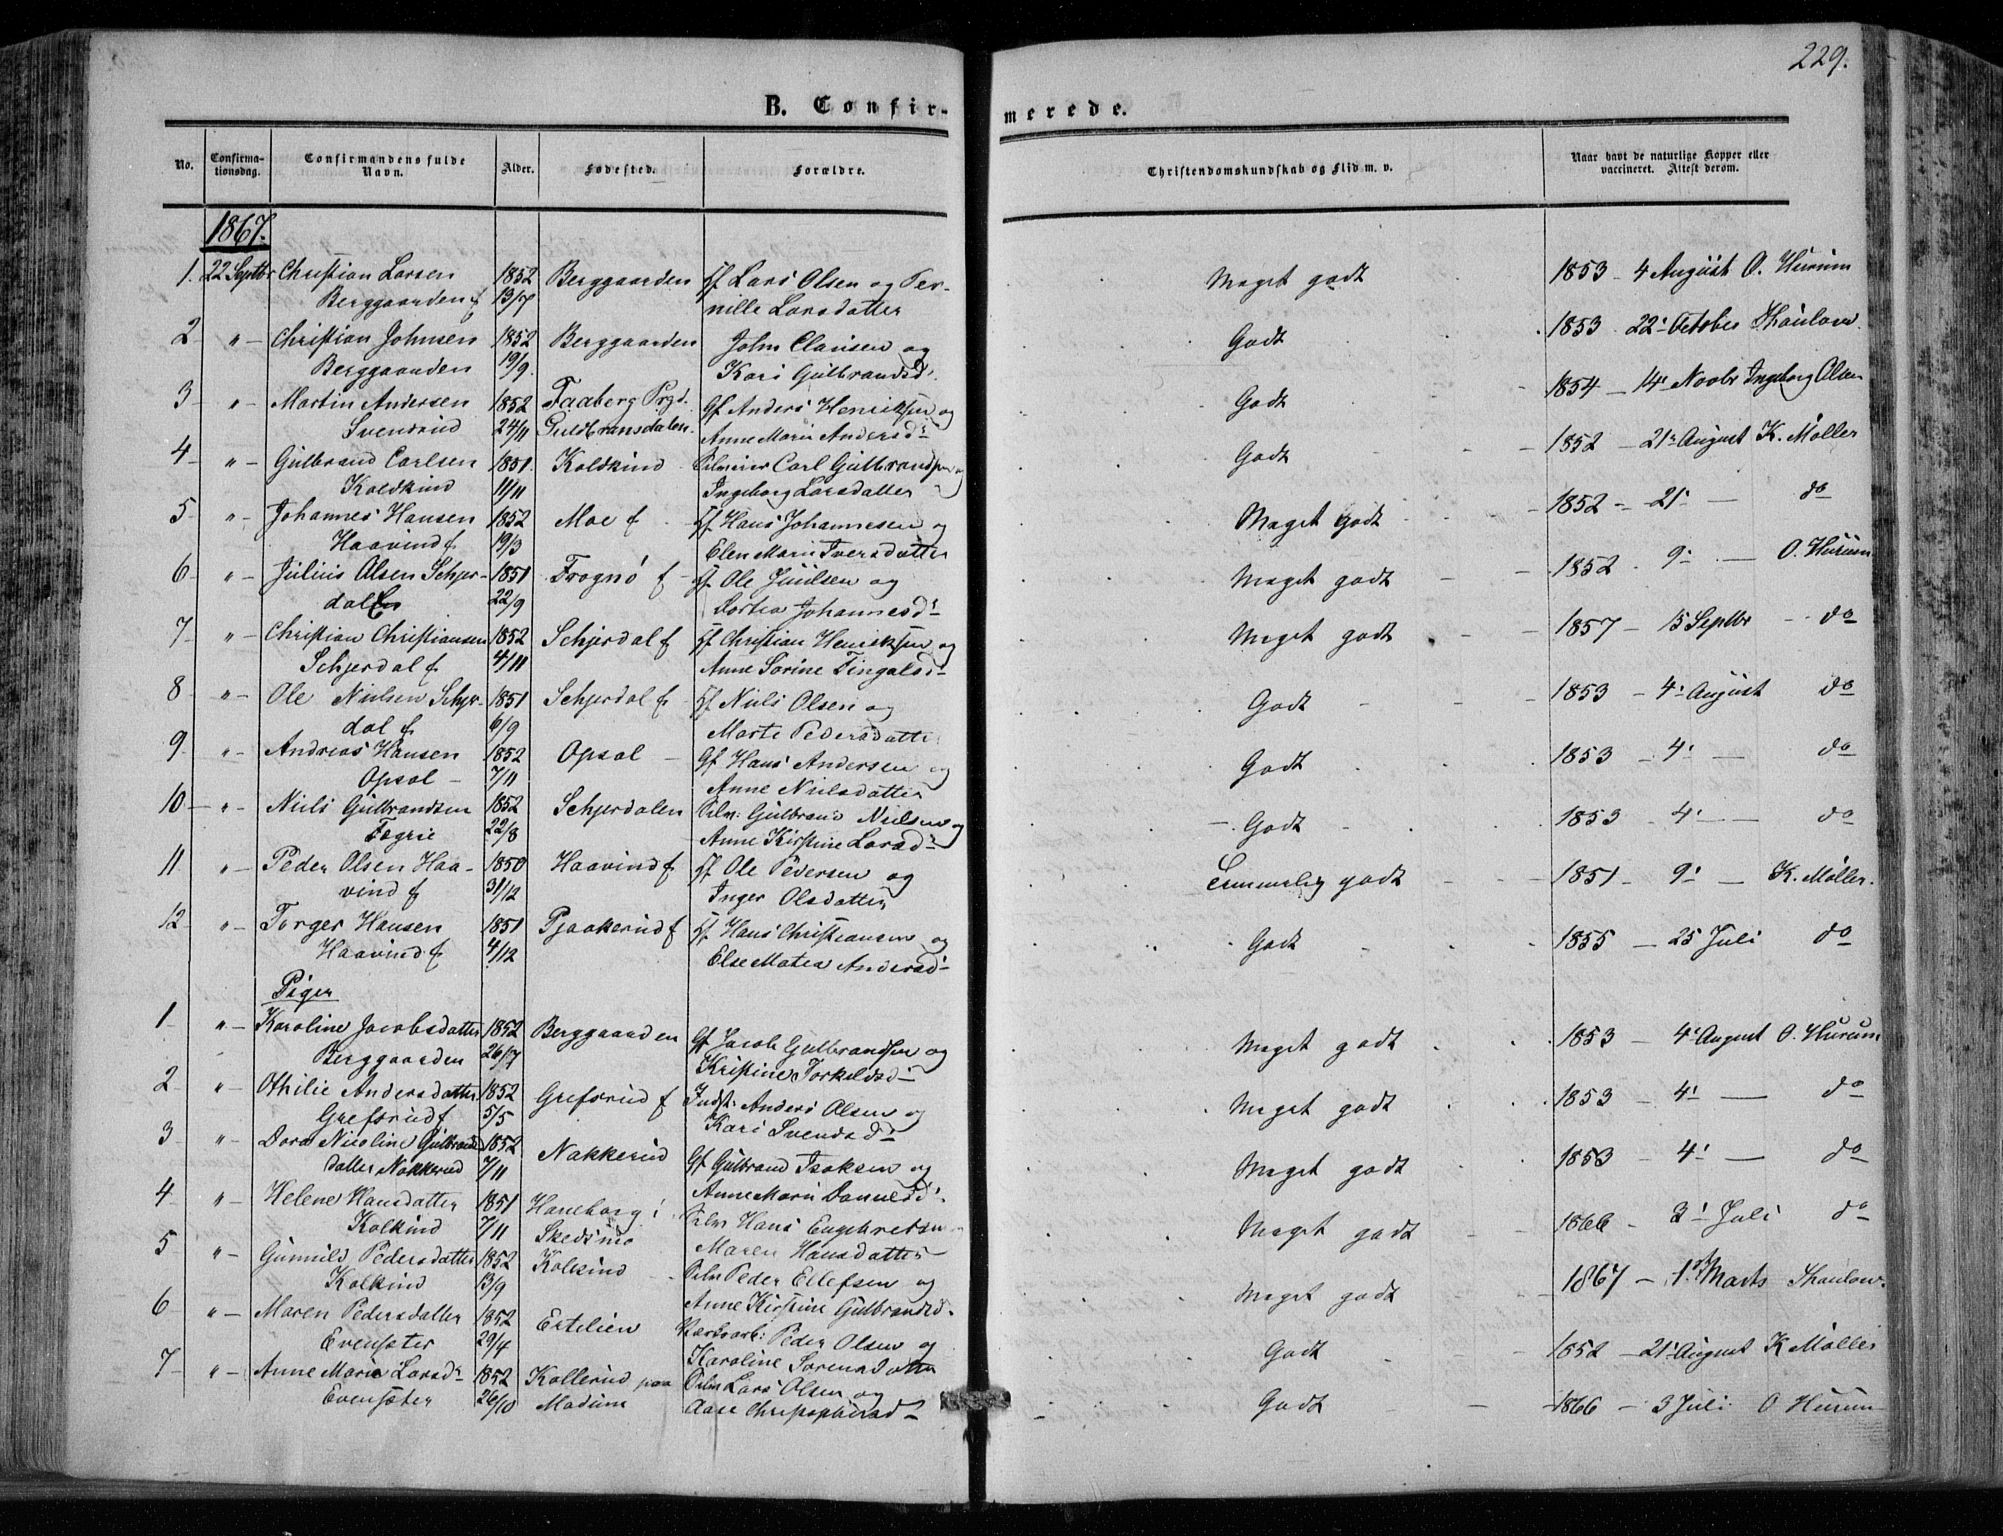 229.
B. Confir-
merede.
No.
Confirma-
tionsdag.
Confirmandens fulde
Navn.
Alder.
Fødested.
Forældre.
Christendomskundskab og Flid m. v.
Naar havt de naturlige Kopper eller
vaccineret. Attest derom.
1867.
1. 22 Septbr Christian Larsen 1852 Berggaarden Lars Olsen og Per- Meget godt 1853 - 4 August O. Hurum
Berggaarden f 13/7 nille Larsdatter
2 " - Christian Johnsen 1852 Berggaarden John Clausen og Godt 1853 22' October Thaulow.
Berggaarden 19/9. Kari Gulbrandsd'.
3 - " - Martin Andersen 1852 Faaberg Prgd. Gf Anders Henriksen og Godt 1854 - 14' Novbr Ingeborg Olsen
Svensrud 24/11 Guldbransdalen. Anne Marie Andersd'
4 - " - Gulbrand Carlsen 1851. Koldkind Carl Gulbrandsen og Godt 1852 - 21' August K. Møller
Koldkind 11/11 Ingeborg Larsdatter
5 " - Johannes Hansen 1852 Moe f Hans Johannesen og Meget godt 1852 - 21' — do
Haavind f 19/3 Elen Marie Iversdatter
6 - " - Julius Olsen Schjer- 1851 Frognø f - Ole Juulsen og Meget godt 1852 9' — O. Hurum
dalen 22/9 Dortea Johannesd'
7 - " - Christian Christiansen 1852 Schjerdal f Christian Henriksen og Meget godt 1857 - 15 Septbr do
Schjerdal f 4/11 Anne Sorine Fingalsd'
8 " - Ole Nielsen Schjer- 1851 Schjerdal f Niels Olsen og Godt 1853 - 4' August do
dal f 6/9 Marte Pedersdatter
9 " - Andreas Hansen 1852 Opsal - Gf Hans Andersen og Godt 1853 - 4' do
Opsal - 7/11 Anne Nielsdatter
10 - " - Niels Gulbrandsen 1852 Schjerdalen Gulbrand Nielsen og Godt 1853 4' — do
Fagrie 22/8 Anne Kirstine Larsd'
11 " - Peder Olsen Haa- 1850 Haavind f Ole Pedersen og Temmelig godt 1851 - 9' — K. Møller.
vind f 31/12 Inger Olsdatter
12 - " - Torger Hansen 1851 Pjaakerud f Hans Christiansen og Godt 1855 - 25 Juli do
Haavind f 4/12 Else Matea Andersd'
Piger
1 " - Karoline Jacobsdatter 1852 Berggaarden Gf Jacob Gulbrandsen og Meget godt 1853 - 4' August O. Hurum
Berggaarden 26/7 Kristine Torkeldsd'
2 " - Othilie Andersdatter 1852 Grefsrud f Indst: Anders Olsen og Meget godt 1853 - 4' — do
Grefsrud f 5/5 Kari Svendsd'
3 " - Dora Nicoline Gulbrands 1852 Nakkerud Gf Gulbrand Isaksen og Meget godt 1853 - 4' — do
datter Nakkerud 7/11 Anne Marie
4 " - Helene Hansdatter 1851 Haneborg i Hans Engebretsen Meget godt 1866 - 3' Juli do
Kolkind 7/11 Skedsmo Maren Hansdatter
5 " - Gunnild Pedersdatter 1852 Kolkind Peder Ellefsen og Meget godt 1867 - 1' Marts Thaulow.
Kolkind 13/9 Anne Kirstine Gulbrandsd.
6 " - Maren Pedersdatter 1852 Ertelien Peder Olsen og Godt 1852 - 21' August K Møller
Evensæter 29/4 Karoline Sorensdatter
7 - " - Anne Marie Larsd' 1852 Kollerud paa Lars Olsen og Godt 1866 - 3 Juli O Hurum
Evensæter 26/10 Modum Aase Christophersd'